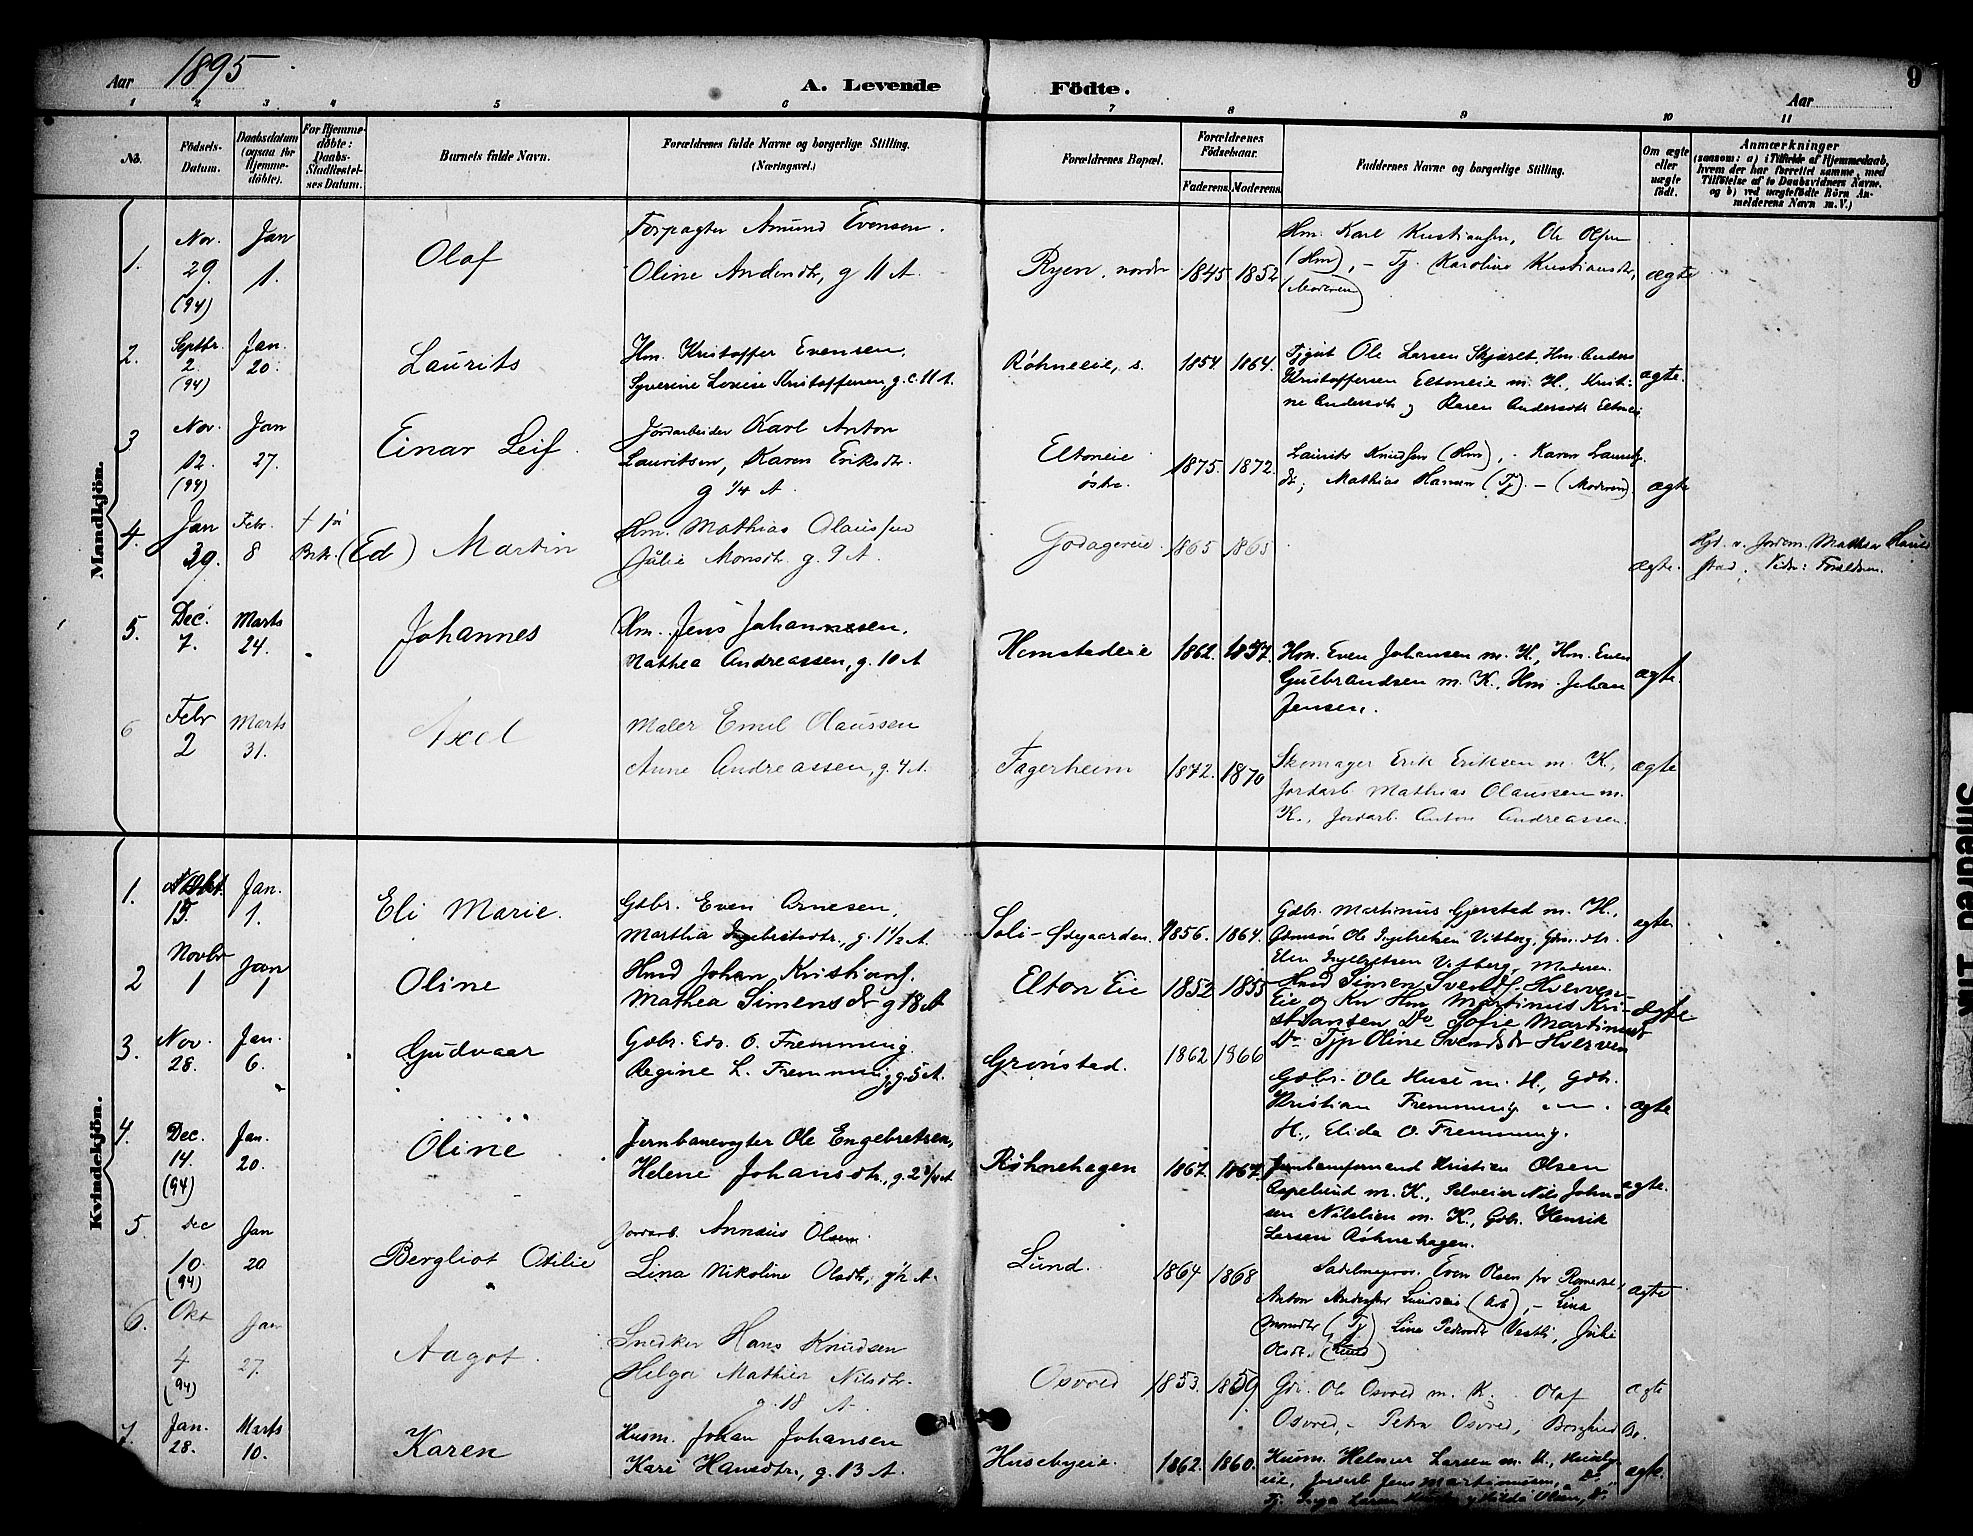 Aar 1895
A. Levende Födte.
Aar
9
1 2 3 4 5 6 7 8 9 10 11
No.
Födsels-Datum.
Daabsdatum (ogsaa for Hjemme-döbte).
For Hjemme-döbte: Daabs-Stadfæstel-ses Datum.
Barnets fulde Navn.
Forældrenes fulde Navne og borgerlige Stilling. (Næringsvei.)
Forældrenes Bopæl.
Forældrenes Födselsaar.
Faderens. Moderens.
Faddernes Navne og borgerlige Stilling.
Om ægte eller uægte födt.
Anmærkninger
(saasom: a) i Tilfælde af Hjemmedaab,
hvem der har forrettet samme, med
Tilföielse af to Daabsvidners Navne.
og b) ved uægtefödte Börn An-
melderens Navn m.V.)
Mandkjön.
1. Nov. 29. (94) Jan 1. Olaf
Forpagter Amund Evensen.
Oline Andersdtr, g 11 A.
Ryen, nordr 1845 1852
Hm. Karl Kristiansen, Ole Olsen
(Hm), - Tj. Karoline Kristiansdtr,
(Moderen)
ægte
2. Septbr. 2. (94) Jan. 20. Laurits
Hm. Kristoffer Evensen,
Syverine Lovise Kristoffersen, g. c. 11 A.
Røhneeie, s. 1854. 1864.
Tjgut Ole Larsen Skjæret, Hm. Anders
Kristoffersen Eltoneie m. H., Kristi-
ne Andersdtr og Karen Andersdtr Eltoneie
ægte.
3 Nov. 12. (94) Jan 27. Einar Leif.
Jordarbeider Karl Anton
Lauritsen, Karen Eriksdtr.
g 1/4 A.
Eltoneie østre. 1875. 1872.
Laurits Knudsen (Hm), - Karen Laurits
dtr; Mathias Hansen (Tj). - (Moderen)
ægte
4. Jan 30. Febr. 8 (Ed) Martin
Hm. Mathias Olaussen
Julie Monsdtr. g. 9 A.
Godagereie. 1865 1865
ægte.
Hjd. v. Jordem. Mathea
stad, Vidn: Forældrene.
5. Dec. 7. Marts 24. Johannes
Hm. Jens Johannesen,
Mathea Andreassen, g. 10 A
Homstadeie 1862. 1857.
Hm. Even Johansen m. H., Hm. Even
Gulbrandsen m. K., Hm. Johan
Jensen.
ægte
6 Febr 2 Marts 31. Axel
Maler Emil Olaussen
Anne Andreassen, g. 4 A.
Fagerheim 1842. 1870
Skomager Erik Eriksen m. K.,
Jordarb Mathias Olaussen m.
K., Jordarb. Anton Andreassen.
ægte
Kvindekjön.
1. 15. Jan. 1. Eli Marie.
Gdbr. Even Arnesen,
Martha Ingebretsdtr., g. 1 1/2 A.
Soli-Ødegaarden. 1856. 1864.
Gdbr. Martinus Gjerstad m. H.,
Gdmsøn Ole Ingebretsen Vitberg, Gdm. dtr.
Elen Ingebretsen Vitberg, Moderen.
ægte
2 Novbr 1 Jan 1 Oline
Hmd Johan Kristians.
Mathea Simensdtr g 18 A
Elton Eie 1852 1855
Hmd Simen Svends. Hverven-
Eie og Kr Hm Martinus Kri-
stiansen Do Sofie Martinusd
Do Tjp Oline Svendsdtr Hverven
ægte
3. Nov. 28. Jan. 6. Gudvaar
Gdbr. Edv. O. Fremming.
Regine L. Fremming, g. 5 A.
Grønstad. 1862 1866
Gdbr. Ole Huse m. H., Gdbr.
Kristian Fremming m
H., Elida O. Fremming.
ægte
4. Dec. 14. (94) Jan. 20. Oline
Jernbanevogter Ole Engebretsen,
Helene Johansdtr., g. 2 3/4 A.
Røhnehagen 1867. 1867.
Jernbaneformand Kristian Olsen
Aspelund m. K., Selveier Nils John-
sen Nilslien m. K., Gdbr. Henrik
Larsen Røhnehagen.
ægte.
5. Dec 10. (94) Jan 20 Bergliot Otilie
Jordarb. Annæus Olsen.
Lina Nikoline Olsdtr, g 1/2 A.
Lund. 1864 1868
Sadelmagersv. Even Olsen fra Romedal,
Anton Andersen Lundseie (Arb), - Lina
Monsdtr (Tj) Lina Pedersdtr Vestli, Julie
Olsdtr. (Lund)
ægte
6. Okt 4 (94) Jan 27. Aagot.
Snedker Hans Knudsen
Helga Mathea Nilsdtr.
g. 18 A.
Osvold 1853. 1859.
Gdr. Ole Osvold m. K. Olaf
Osvold, Petra Osvold, Do.
ægte
7. Jan. 28. Marts 10. Karen
Husm. Johan Johansen
Kari Hansdtr., g. 13 A.
Husebyeie. 1862. 1860.
Husm. Helmer Larsen m. K., Huseby-
eie, Jordarb Jens Martinusen, Do.
Tj. Inga Larsen Hilda Olsen, do.
ægte.
Smedrud Trik